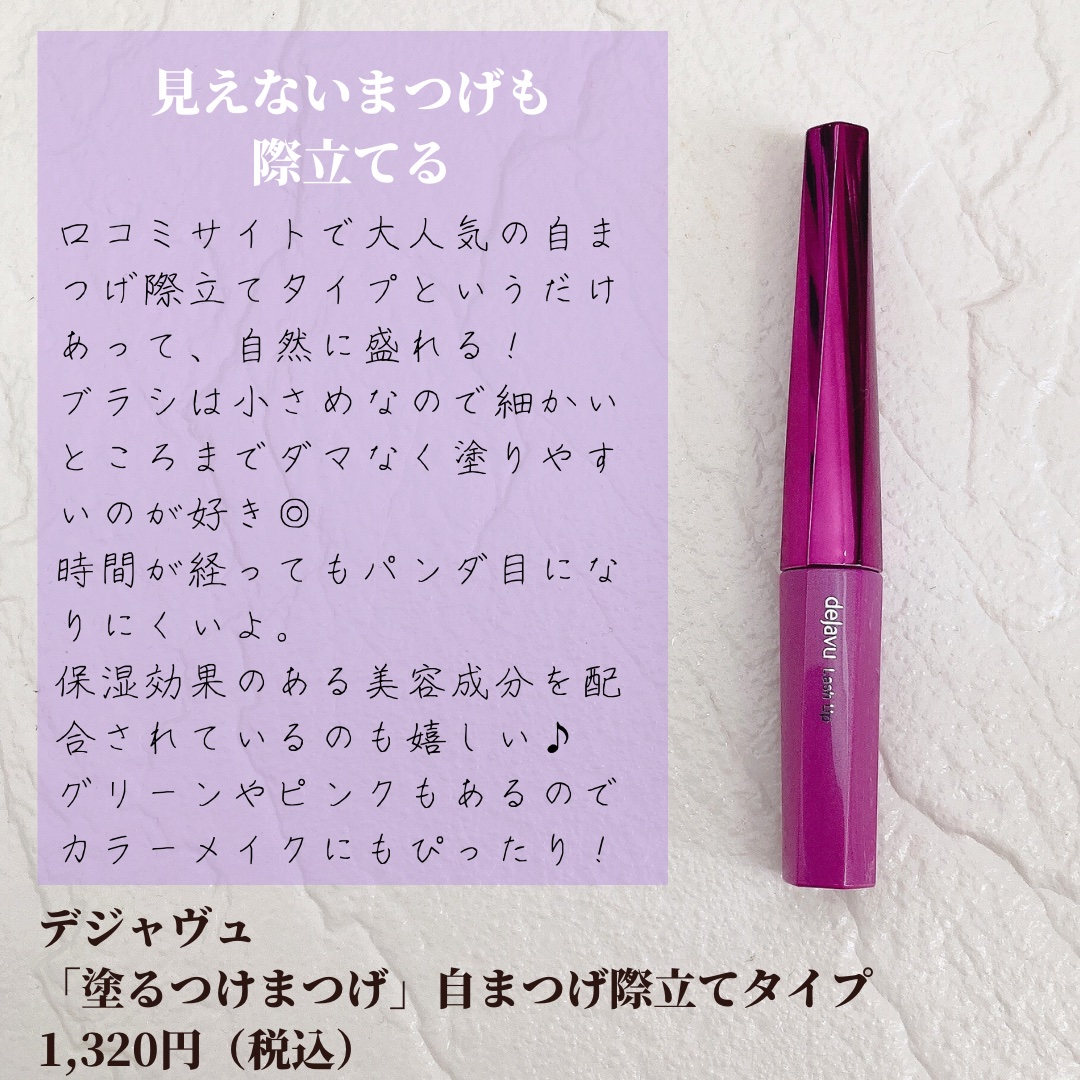 見えないまつげも
際立てる
口コミサイトで大人気の自ま
つげ際立てタイプというだけ
あって、自然に盛れる！
ブラシは小さめなので細かい
ところまでダマなく塗りやす
いのが好き◎
時間が経ってもパンダ目にな
りにくいよ。
保湿効果のある美容成分を配
合されているのも嬉しい♪
グリーンやピンクもあるので
カラーメイクにもぴったり！
dejavu lash up
デジャヴュ
「塗るつけまつげ」自まつげ際立てタイプ
1,320円（税込）